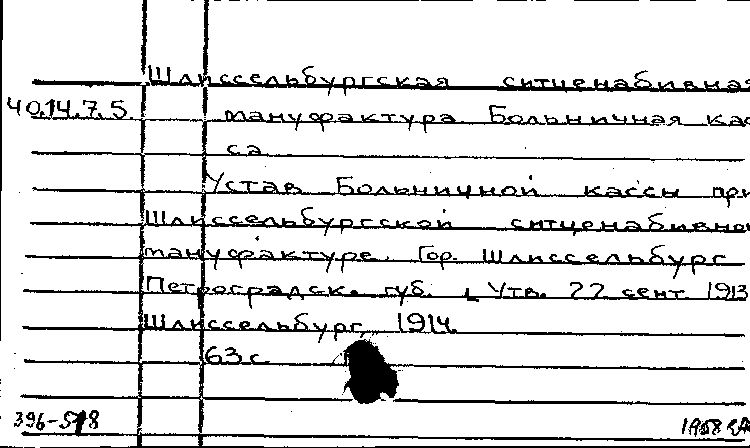 Шлиссельбургская ситценабивная
40.14.7.5. мануфактура. Больничная кас
са
Устав Больничной кассы при
Шлиссельбургской ситценабивной
мануфактуре. Гор. Шлиссельбург
Петроградск. губ. Утв. 22 сент 1913
Шлиссельбург, 1914.
63 с
396-598